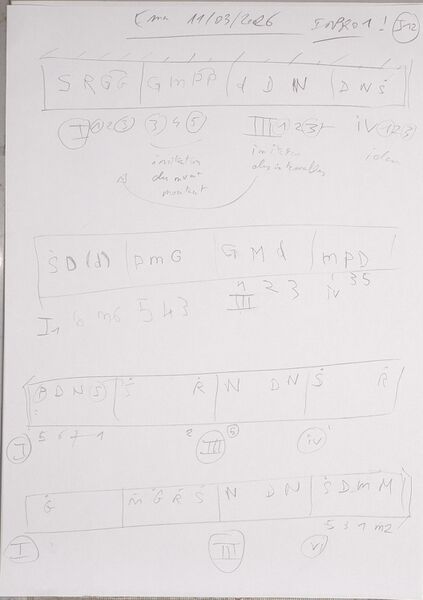 11/03/2026 IMPRO 1 ! I12
S R G G | G m p p | d D N | D N Ṡ
I 1 2 3 3 4 5 III 1 2 3 iv 1 2 3
imitation
du mouvt
montant
idem
Ṡ D (d) | p m G | G M d | m p D
I 1 6 m6 5 4 3 III 1 2 3 iv 1 3 5
P D N S | Ṡ Ṙ | N D N | Ṡ Ṙ
I 5 6 7 1 2 III 5 iv
Ġ | Ṁ Ġ Ṙ Ṡ | N D N | Ṡ D m M
5 3 1 m2
I III